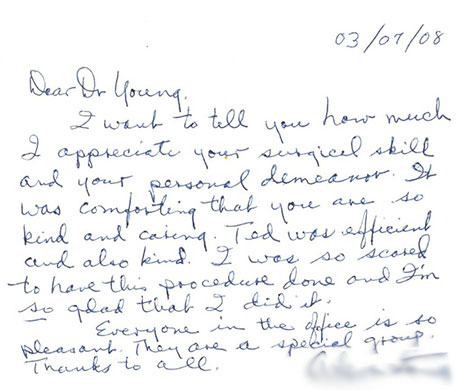 03/07/08
Dear Dr Young,
I want to tell you how much
I appreciate your surgical skill
and your personal demeanor. It
was comforting that you are so
kind and caring. Ted was efficient
and also kind. I was so scared
to have this procedure done and I'm
so glad that I did it.
Everyone in the office is so
pleasant. They are a special group.
Thanks to all.